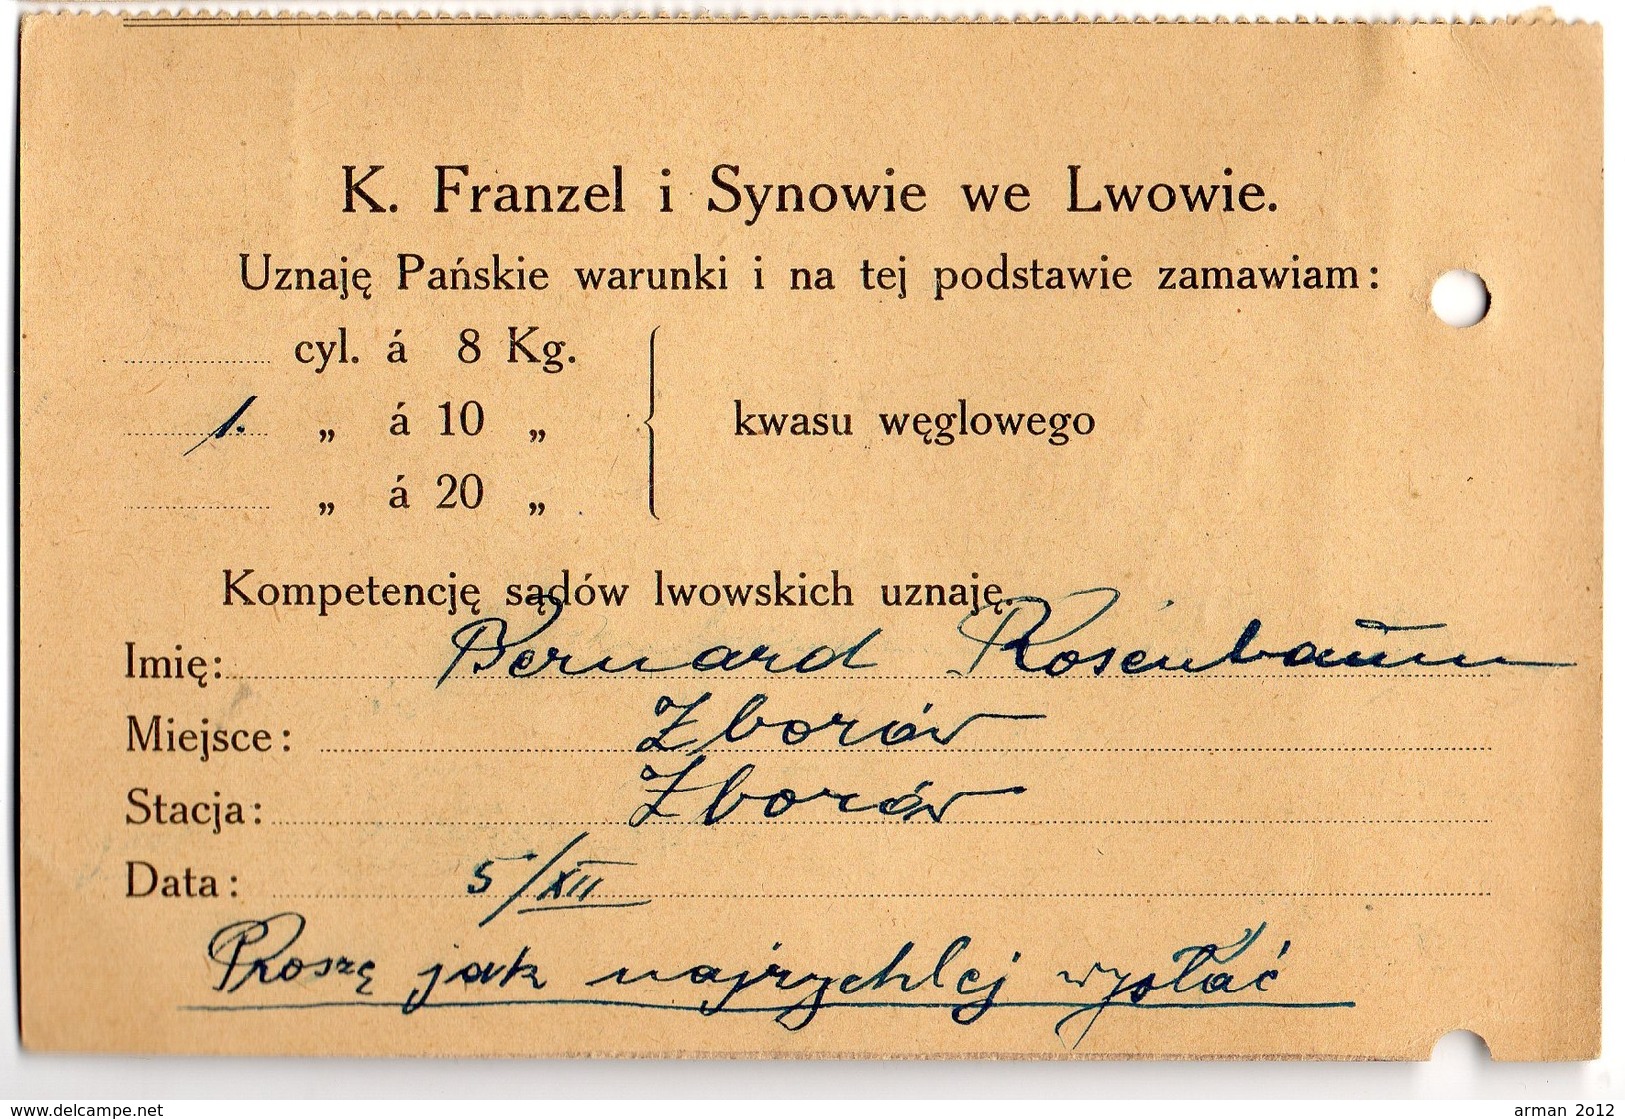 K. Franzel i Synowie we Lwowie.
Uznaję Pańskie warunki i na tej podstawie zamawiam:
cyl. á 8 Kg.
1. „ á 10 „ kwasu węglowego
„ á 20 „
Kompetencję sądów lwowskich uznaję.
Imię: Bernard Rosenbaum
Miejsce: Zborów
Stacja: Zborów
Data: 5/XII
Proszę jak najrychlej wysłać
www.delcampe.net
arman 2o12